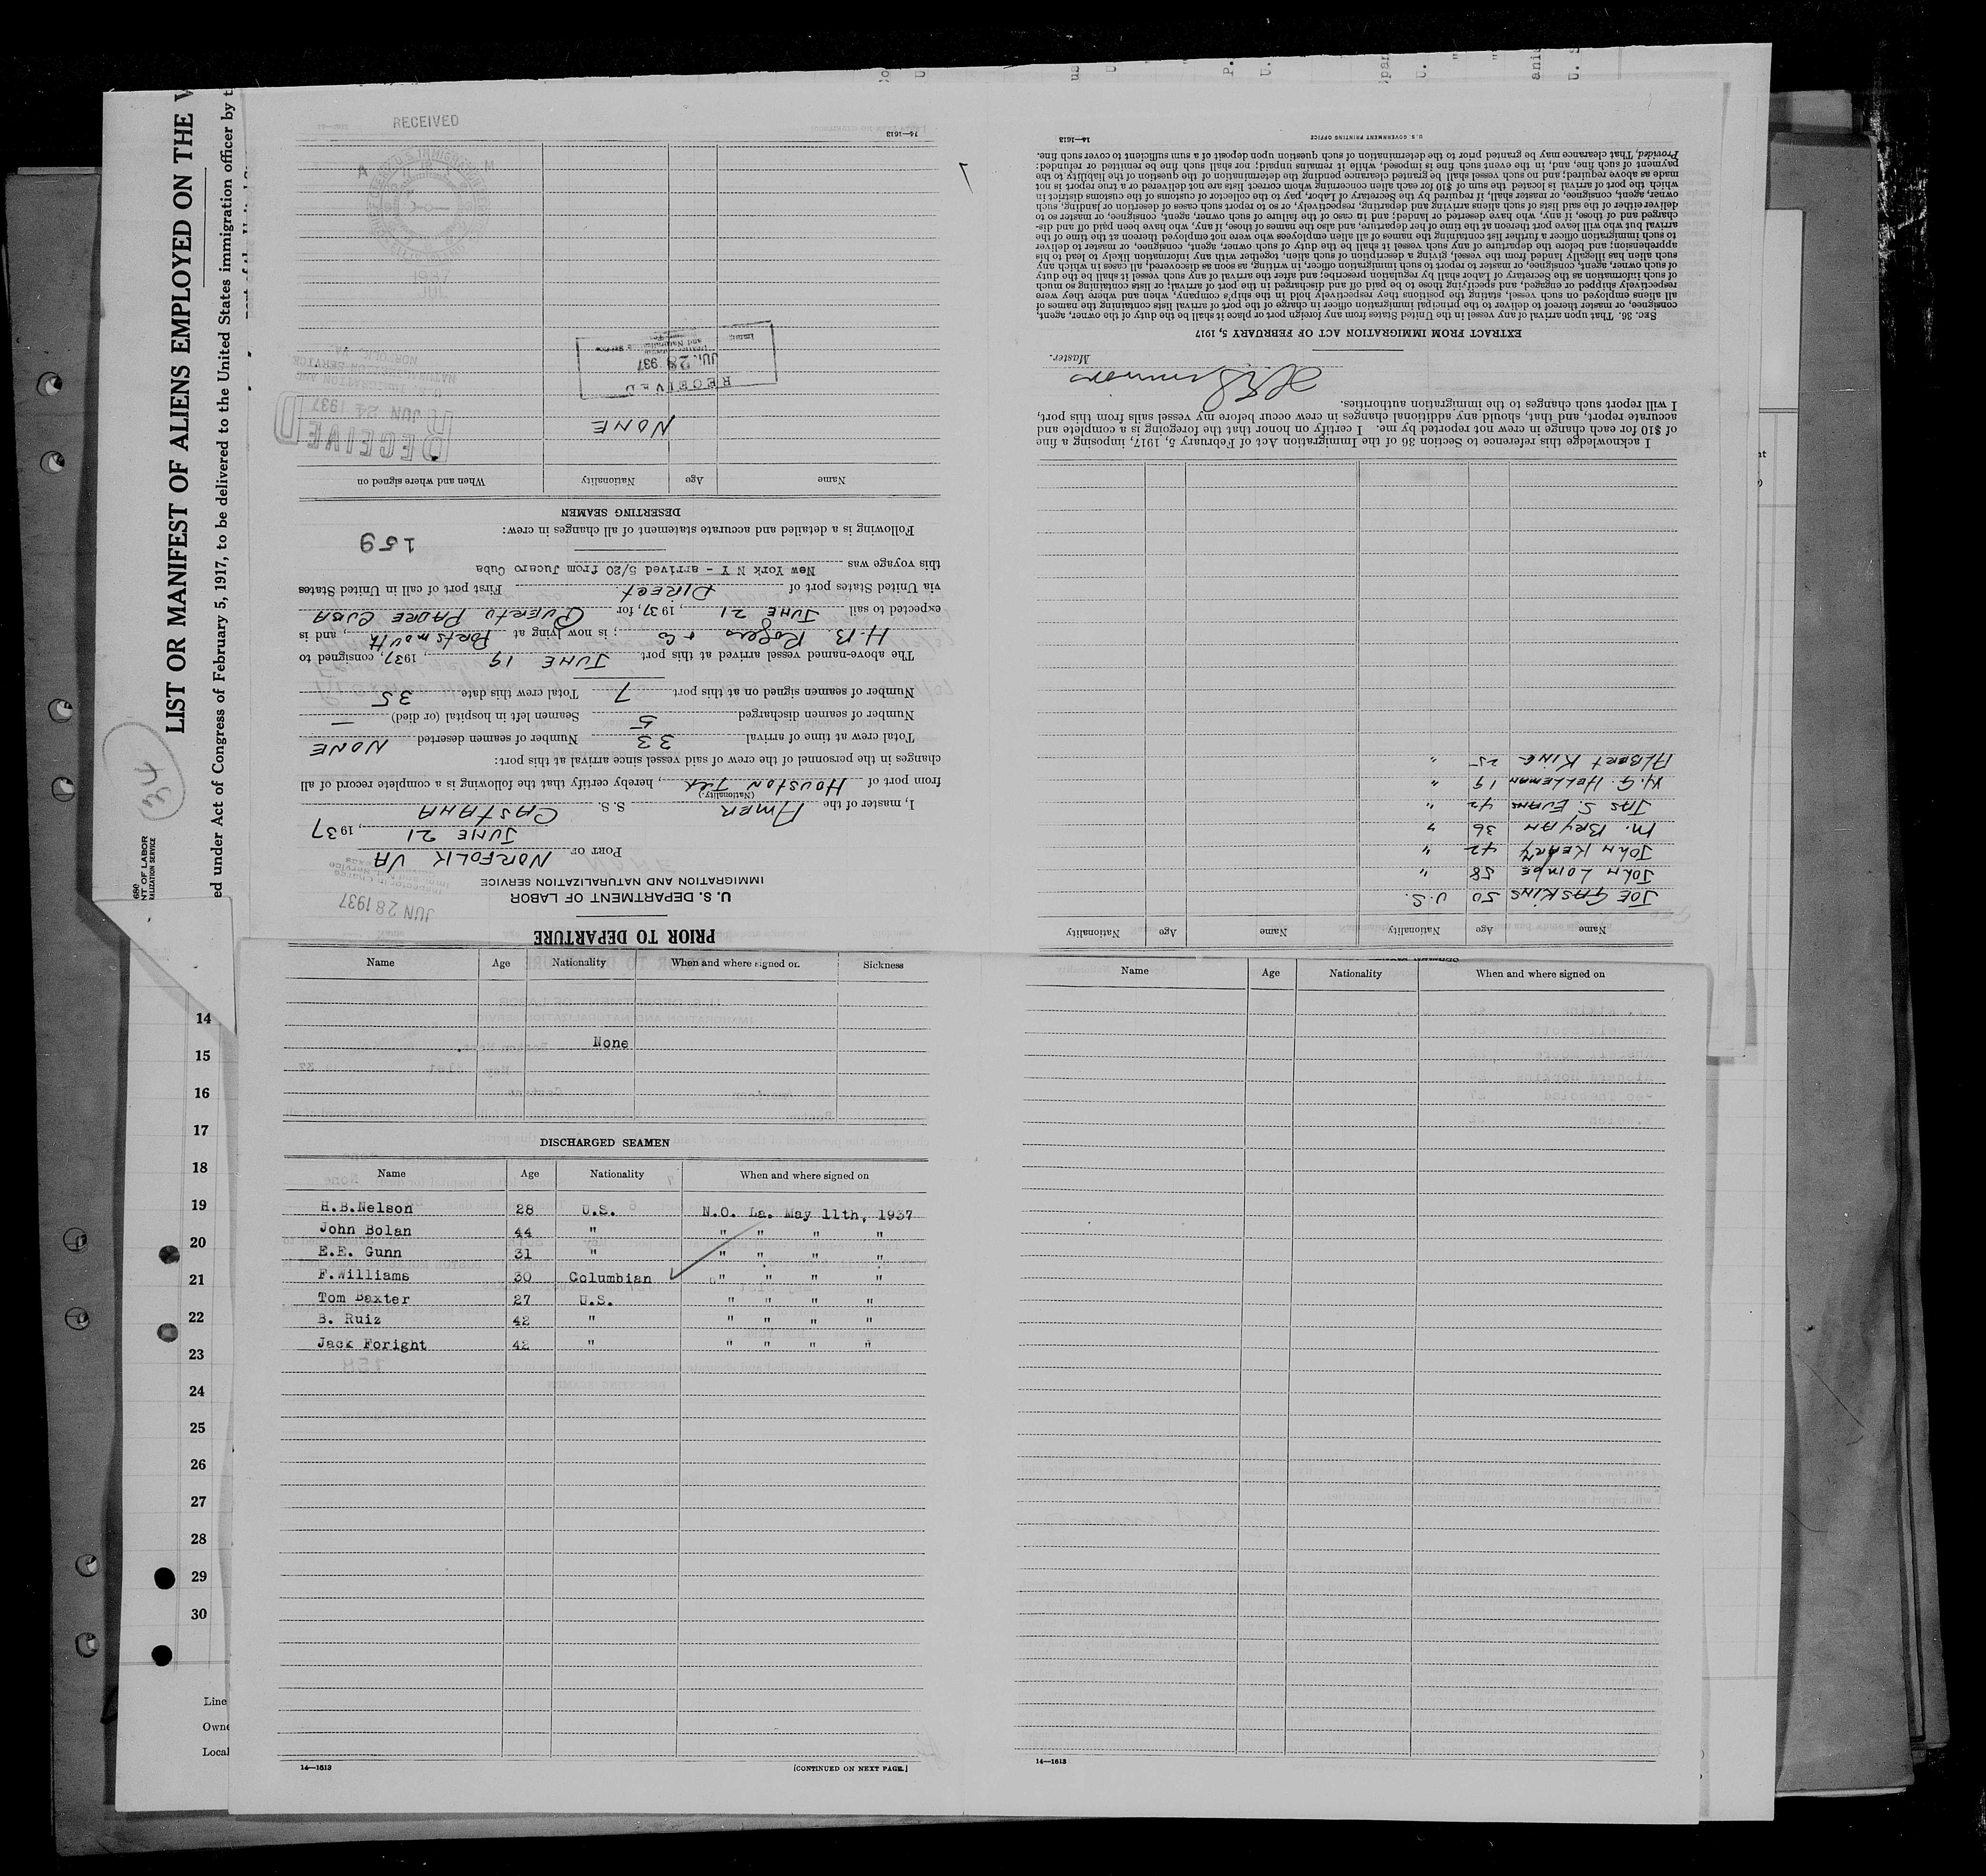 LIST OR MANIFEST OF ALIENS EMPLOYED ON THE
ed under Act of Congress of February 5, 1917, to be delivered to the United States immigration officer by t
NT OF LABOR
ALIZATION SERVICE
34
PRIOR TO DEPARTURE
U. S. DEPARTMENT OF LABOR
IMMIGRATION AND NATURALIZATION SERVICE
JUN 28 1937
PORT OF NORFOLK VA
JUNE 21, 1937
I, master of the AMER S. S. CASTANA
(Nationality.)
from port of HOUSTON TEX, hereby certify that the following is a complete record of all
changes in the personnel of the crew of said vessel since arrival at this port:
Total crew at time of arrival 33 Number of seamen deserted NONE
Number of seamen discharged 5 Seamen left in hospital (or died) —
Number of seamen signed on at this port 7 Total crew this date 35
The above-named vessel arrived at this port JUNE 19, 1937, consigned to
H.B. Rogers + Co; is now lying at PORTSMOUTH, and is
expected to sail JUNE 21, 1937, for PUERTO PADRE CUBA
via United States port of DIRECT First port of call in United States
this voyage was New York N Y - arrived 5/20 from Jucaro Cuba
159
Following is a detailed and accurate statement of all changes in crew:
DESERTING SEAMEN
Name Age Nationality When and where signed on
NONE
RECEIVED
JUN 24 1937
U. S. IMMIGRATION AND
NATURALIZATION SERVICE
NORFOLK, VA.
RECEIVED
JUN 28 1937
14—1613
RECEIVED
1937
Name Age Nationality Name Age Nationality
JOE GASKINS 50 U.S.
JOHN LOINPE 58 "
JOHN KEARY 42 "
M. BRYAN 36 "
JAS S. EVANS 42 "
W. G. HELLEMAN 19 "
ALBERT KING 25 "
I acknowledge this reference to Section 36 of the Immigration Act of February 5, 1917, imposing a fine
of $10 for each change in crew not reported by me. I certify on honor that the foregoing is a complete and
accurate report, and that, should any additional changes in crew occur before my vessel sails from this port,
I will report such changes to the immigration authorities.
Master.
EXTRACT FROM IMMIGRATION ACT OF FEBRUARY 5, 1917
SEC. 36. That upon arrival of any vessel in the United States from any foreign port or place it shall be the duty of the owner, agent,
consignee, or master thereof to deliver to the principal immigration officer in charge of the port of arrival lists containing the names of
all aliens employed on such vessel, stating the positions they respectively hold in the ship's company, when and where they were
respectively shipped or engaged, and specifying those to be paid off and discharged in the port of arrival; or lists containing so much
of such information as the Secretary of Labor shall by regulation prescribe; and after the arrival of any such vessel it shall be the duty
of such owner, agent, consignee, or master to report to such immigration officer, in writing, as soon as discovered, all cases in which any
such alien has illegally landed from the vessel, giving a description of such alien, together with any information likely to lead to his
apprehension; and before the departure of any such vessel it shall be the duty of such owner, agent, consignee, or master to deliver
to such immigration officer a further list containing the names of all alien employees who were not employed thereon at the time of the
arrival but who will leave port thereon at the time of her departure, and also the names of those, if any, who have been paid off and dis-
charged and of those, if any, who have deserted or landed; and in case of the failure of such owner, agent, consignee, or master so to
deliver either of the said lists of such aliens arriving and departing, respectively, or so to report such cases of desertion or landing, such
owner, agent, consignee, or master, shall, if required by the Secretary of Labor, pay to the collector of customs of the customs district in
which the port of arrival is located the sum of $10 for each alien concerning whom correct lists are not delivered or a true report is not
made as above required; and no such vessel shall be granted clearance pending the determination of the question of the liability to the
payment of such fine, and, in the event such fine is imposed, while it remains unpaid; nor shall such fine be remitted or refunded:
Provided, That clearance may be granted prior to the determination of such question upon deposit of a sum sufficient to cover such fine.
14—1613 U. S. GOVERNMENT PRINTING OFFICE
Name Age Nationality When and where signed on Sickness
None
DISCHARGED SEAMEN
Name Age Nationality When and where signed on
H.B.Nelson 28 U.S. N.O. La. May 11th, 1937
John Bolan 44 " " " " "
E.E. Gunn 31 " " " " "
F.Williams 30 Columbian " " " "
Tom Baxter 27 U.S. " " " "
B. Ruiz 42 " " " " "
Jack Foright 42 " " " " "
14—1613 [CONTINUED ON NEXT PAGE.]
Name Age Nationality When and where signed on
14—1613
14
15
16
17
18
19
20
21
22
23
24
25
26
27
28
29
30
Line
Owne
Local